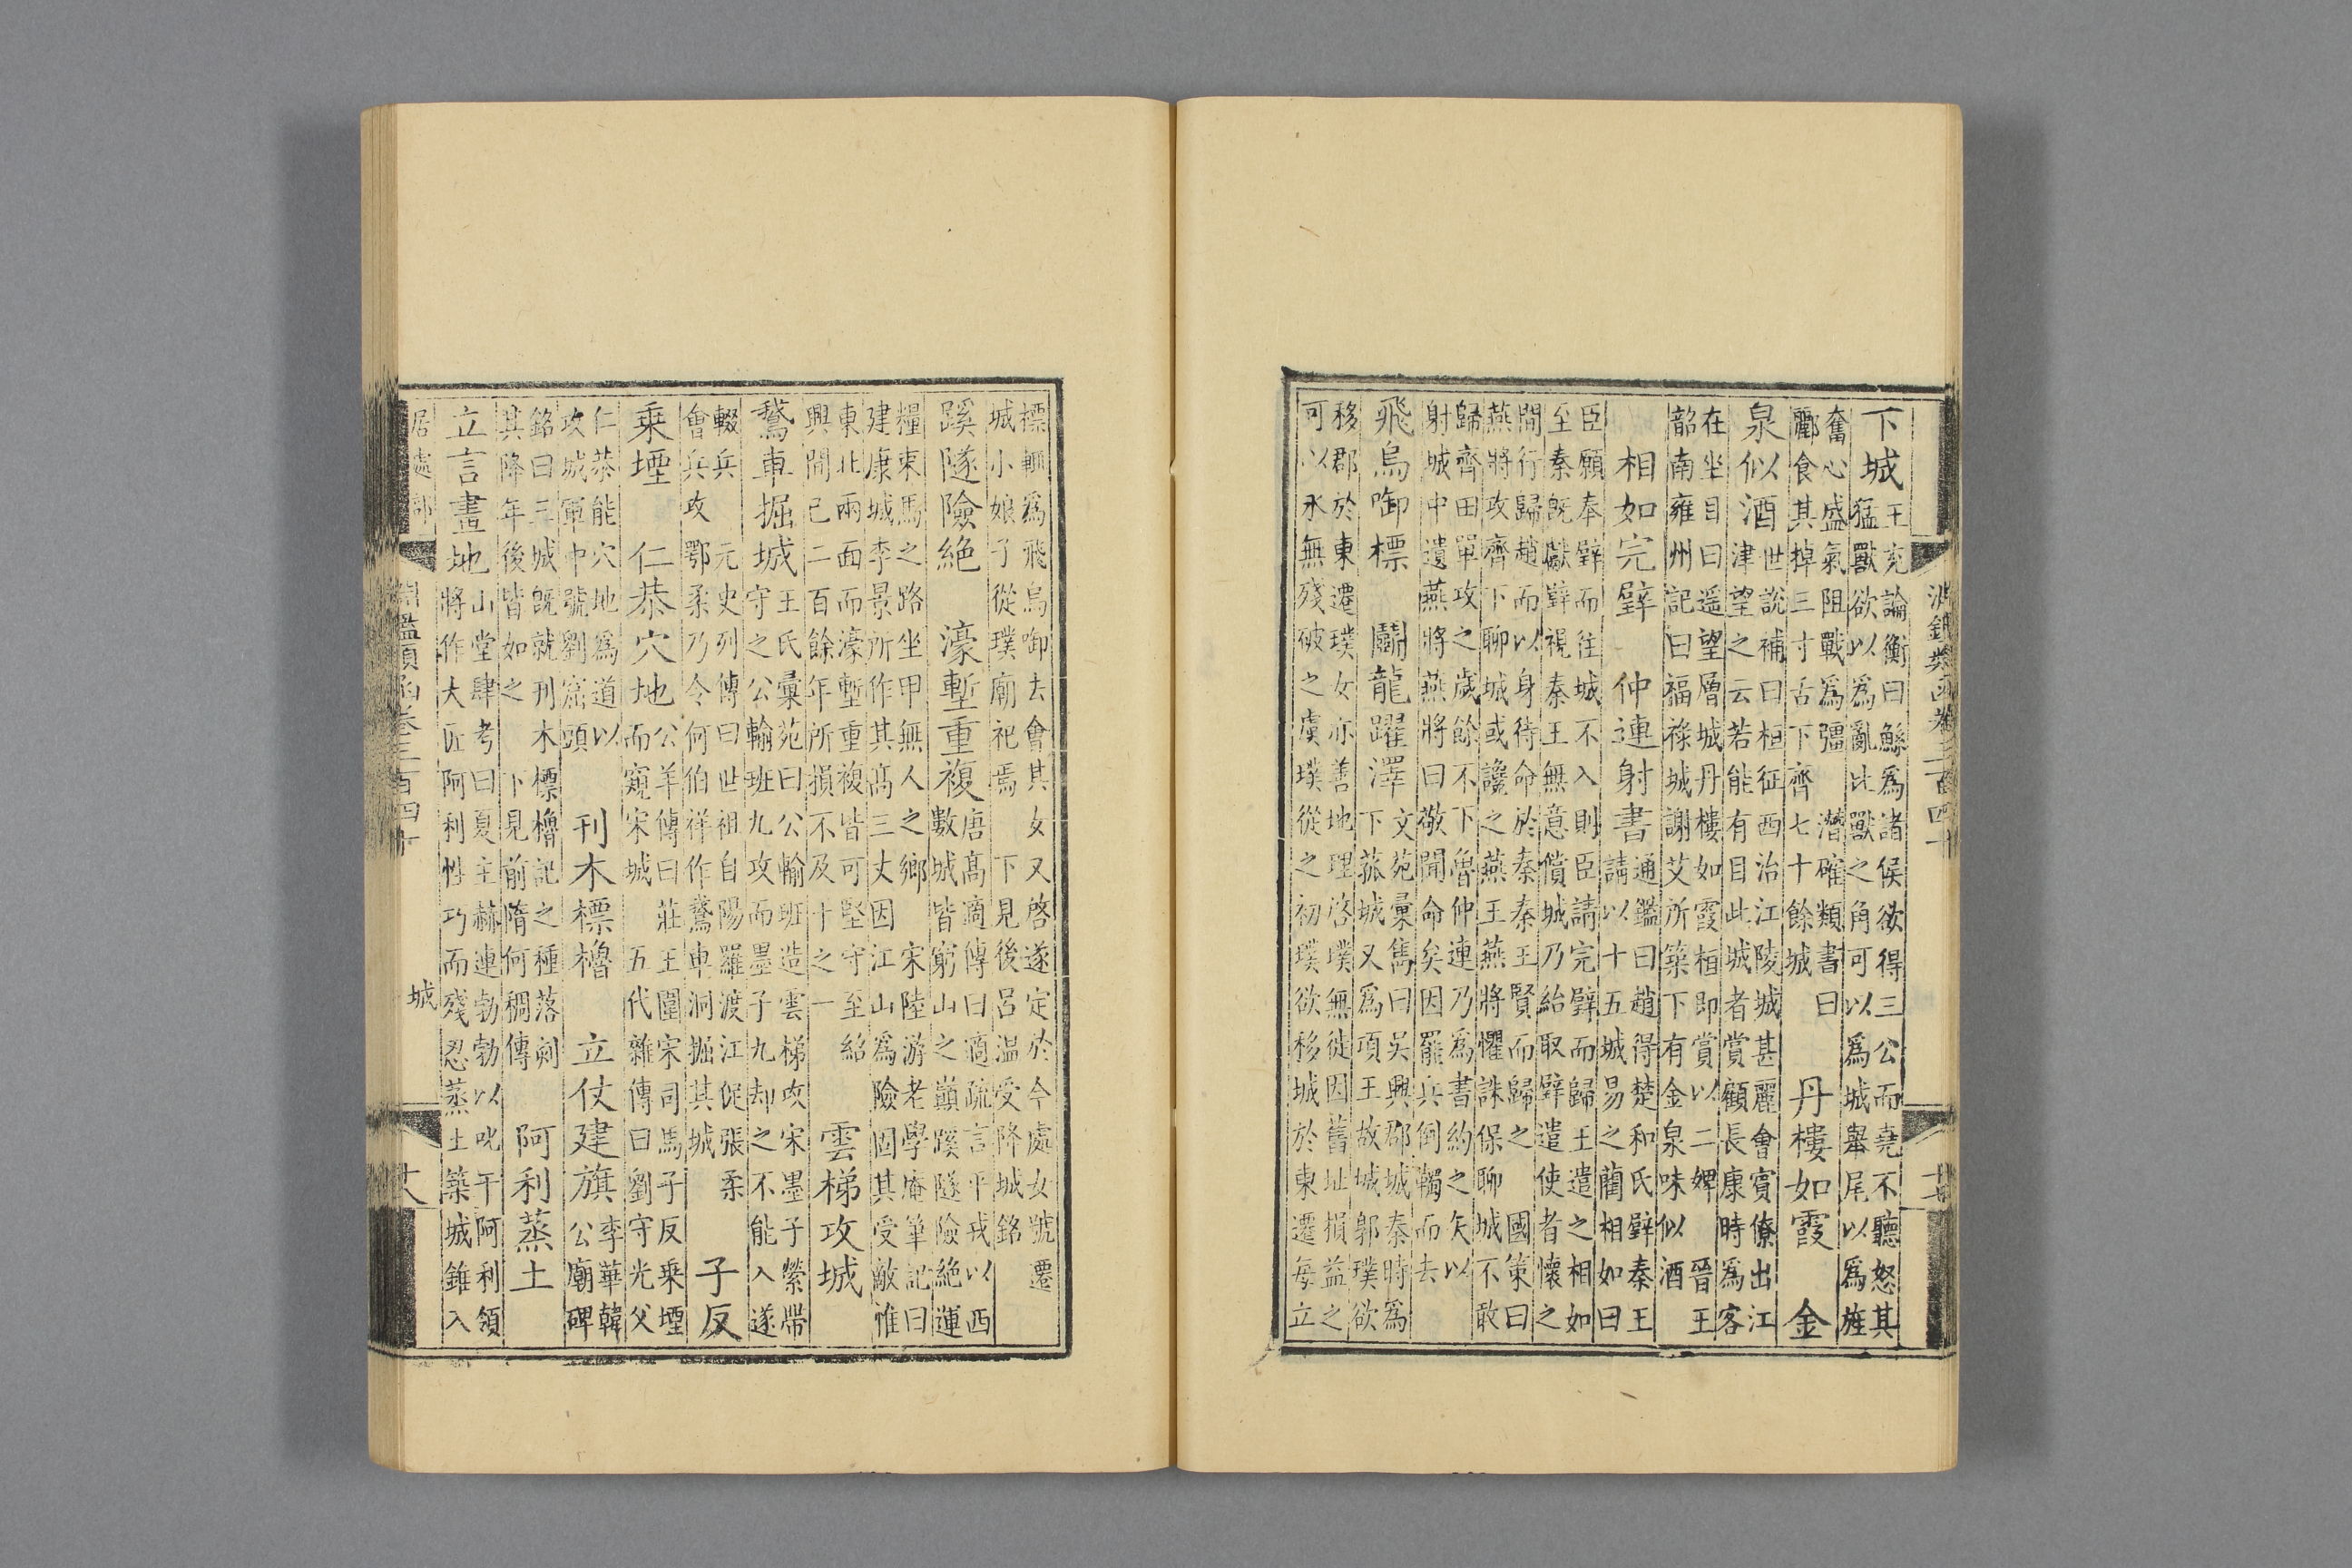 淵鑑類函卷三百四十
十七
下城王充論衡曰鯀爲諸侯欲得三公而堯不聽怒其
猛獸欲以爲亂比獸之角可以爲城舉尾以爲旌
奮心盛氣阻戰爲彊 潛確類書曰
酈食其掉三寸舌下齊七十餘城
丹樓如霞 金
泉似酒世說補曰桓征西治江陵城甚麗會賓僚出江
津望之云若能有目此城者賞顧長康時爲客
在坐目曰遥望層城丹樓如霞桓即賞以二婢 晉王
韶南雍州記曰福祿城謝艾所築下有金泉味似酒
相如完璧 仲連射書通鑑曰趙得楚和氏璧秦王
請以十五城易之藺相如曰
臣願奉璧而往城不入則臣請完璧而歸王遣之相如
至秦旣獻璧視秦王無意償城乃紿取璧遣使者懷之
間行歸趙而以身待命於秦秦王賢而歸之 國策曰
燕將攻齊下聊城或讒之燕王燕將懼誅保聊城不敢
歸齊田單攻之歲餘不下魯仲連乃爲書約之矢以
射城中遺燕將燕將曰敬聞命矣因罷兵倒韣而去
飛烏啣標 鬭龍躍澤文苑彙雋曰吳興郡城秦時爲
下菰城又爲項王故城郭璞欲
移郡於東遷璞女亦善地理啓璞無徙因舊址損益之
可以永無殘破之虞璞從之初璞欲移城於東遷每立
標輒爲飛烏啣去會其女又啓遂定於今處女號遷
城小娘子從璞廟祀焉 下見後呂温受降城銘
蹊隧險絶 濠塹重複唐高適傳曰適疏言平戎以西
數城皆窮山之巔蹊隧險絶運
糧束馬之路坐甲無人之鄉 宋陸游老學庵筆記曰
建康城李景所作其高三丈因江山爲險固其受敵惟
東北兩面而濠塹重複皆可堅守至紹
興間已二百餘年所損不及十之一
雲梯攻城
鵞車掘城王氏彙苑曰公輸班造雲梯攻宋墨子縈帶
守之公輸班九攻而墨子九却之不能入遂
輟兵 元史列傳曰世祖自陽羅渡江促張柔
會兵攻鄂柔乃令何伯祥作鵞車洞掘其城
子反
乘堙 仁恭穴地公羊傳曰莊王圍宋司馬子反乘堙
而窺宋城 五代雜傳曰劉守光父
仁恭能穴地爲道以
攻城軍中號劉窟頭
刊木標櫓 立仗建旗李華韓
公廟碑
銘曰三城旣就刊木標櫓記之種落剡
其降年後皆如之 下見前隋何稠傳
阿利蒸土
立言畫地山堂肆考曰夏主赫連勃勃以叱干阿利領
將作大匠阿利性巧而殘忍蒸土築城錐入
居處部
淵鑑類函卷三百四十
城
十八